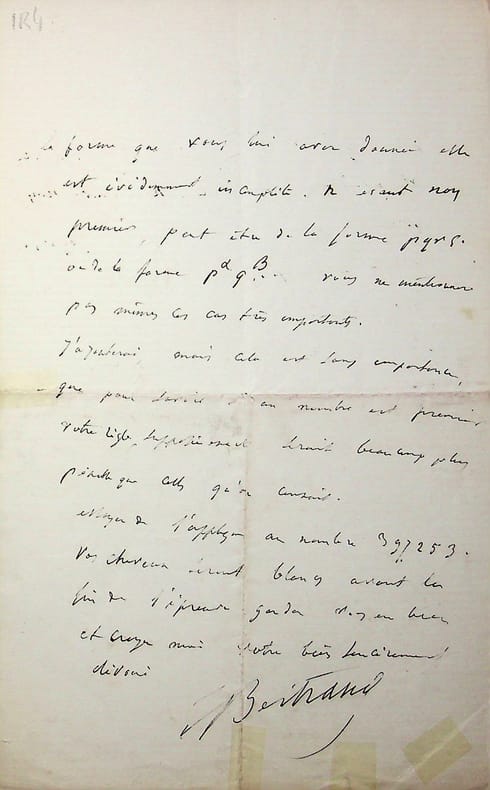 184
la forme que vous lui avez donnée elle
est évidemment incomplète. n étant non
premier peut être de la forme pqrs.
ou de la forme p^α q^β.. vous ne mentionnez
pas même ces cas très importants.
J'ajouterai, mais cela est sans importance,
que pour savoir si un nombre est premier
votre règle, supposée exacte serait beaucoup plus
pénible que celle qu'on connait.
essayez de l'appliquer au nombre 397253.
vos cheveux seront blancs avant la
fin de l'épreuve gardez vous en bien
et croyez moi votre très sincèrement
dévoué
J Bertrand